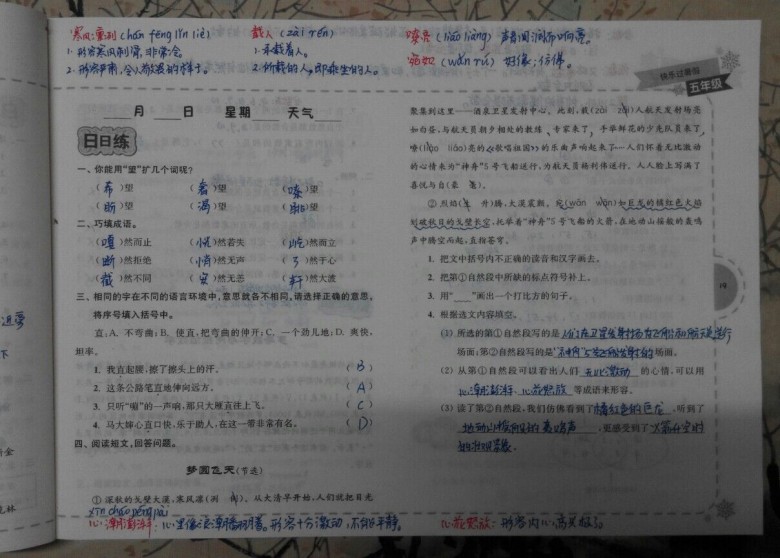 寒风凛冽(hán fēng lǐn liè) 载人(zài rén) 嘹亮(liáo liàng) 声音清晰而响亮。
1.形容寒风刺骨,非常冷。 1.承载着人。 宛如(wǎn rú) 好像;仿佛。
快乐过暑假
五年级
月 日 星期 天气
日日练
一、你能用"望"扩几个词呢?
(希)望 (看)望 (嘹)望
(盼)望 (渴)望 (眺)望
二、巧填成语。
(嘎)然而止 (恍)然若失 (屹)然而立
(断)然拒绝 (悄)然无声 (了)然于心
(截)然不同 (安)然无恙 (轩)然大波
三、相同的字在不同的语言环境中,意思就各不相同,请选择正确的意思,
将序号填入括号中。
直:A. 不弯曲;B. 使直,把弯曲的伸开;C. 一个劲儿地;D. 爽快,
坦率。
1. 我直起腰,擦了擦头上的汗。 (B)
2. 这条公路笔直地伸向远方。 (A)
3. 只听"嘣"的一声响,那只大雁直往上飞。 (C)
4. 马大婶心直口快,乐于助人,在这一带非常有名。 (D)
四、阅读短文,回答问题。
梦圆飞天(节选)
①深秋的戈壁大漠,寒风凛(冽 )。从大清早开始,人们就把目光
xīn cháo péng pài
心潮澎湃:心里像浪潮翻腾。形容十分激动,不能平静。
聚集到这里——酒泉卫星发射中心。此刻,载(zǎi zài)人航天发射场亮
如白昼,与航天员朝夕相处的教练、专家来了,手举鲜花的少先队员来了,
嘹(liáo liáo)亮的《歌唱祖国》的乐曲声响起来了……人们怀着无比激动
的心情来为"神舟"5号飞船送行,为航天员杨利伟送行。人人脸上写满了
喜悦与自(豪 )。
②烈焰( 升)腾,大漠震颤。宛(wǎn wān)如巨龙的橘红色火焰
划破秋日的戈壁长空,托举着"神舟"5号飞船的火箭,在地动山摇般的轰鸣
声中腾空而起,直指苍穹。
1. 把文中括号内不正确的读音和汉字画去。
2. 把第①自然段中所缺的标点符号补上。
3. 用"____"画出一个打比方的句子。
4. 根据选文内容填空。
(1) 所选的第①自然段写的是人们在卫星发射场为飞船和航天员送行
场面;第②自然段写的是"神舟"5号飞船发射的场面。
(2) 从第①自然段可以看出人们无比激动的心情,可以用
心潮澎湃、心花怒放等成语来形容。
(3) 读了第②自然段,我们仿佛看到了橘红色的巨龙,听到了
地动山摇般的轰鸣声,更感受到了火箭升空时
的壮观景象。
心花怒放:形容内心高兴极了。